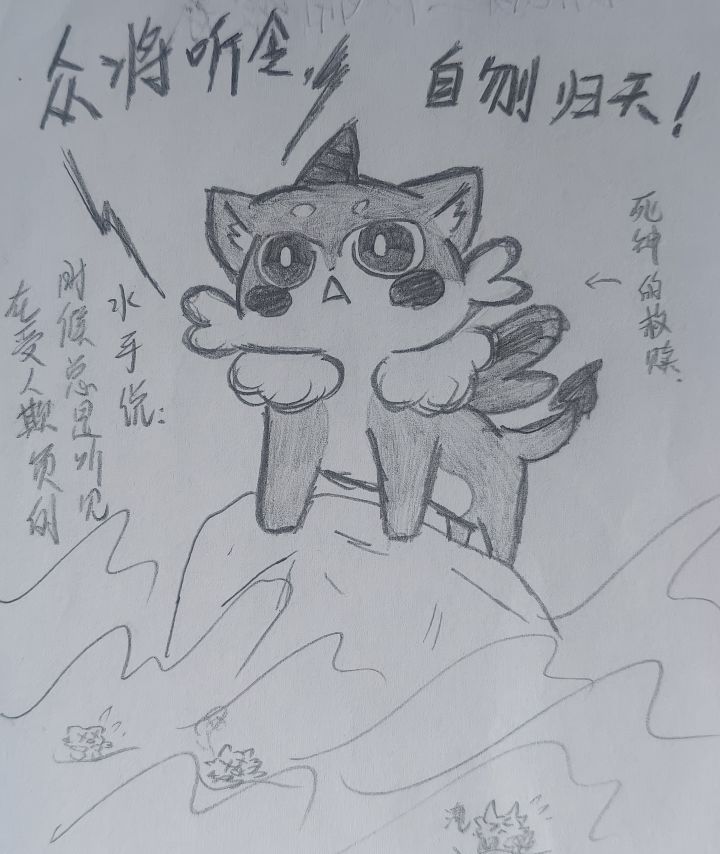 众将听令,
自刎归天!
在受人欺负的
时候总是听见
水手说:
死神的救赎.